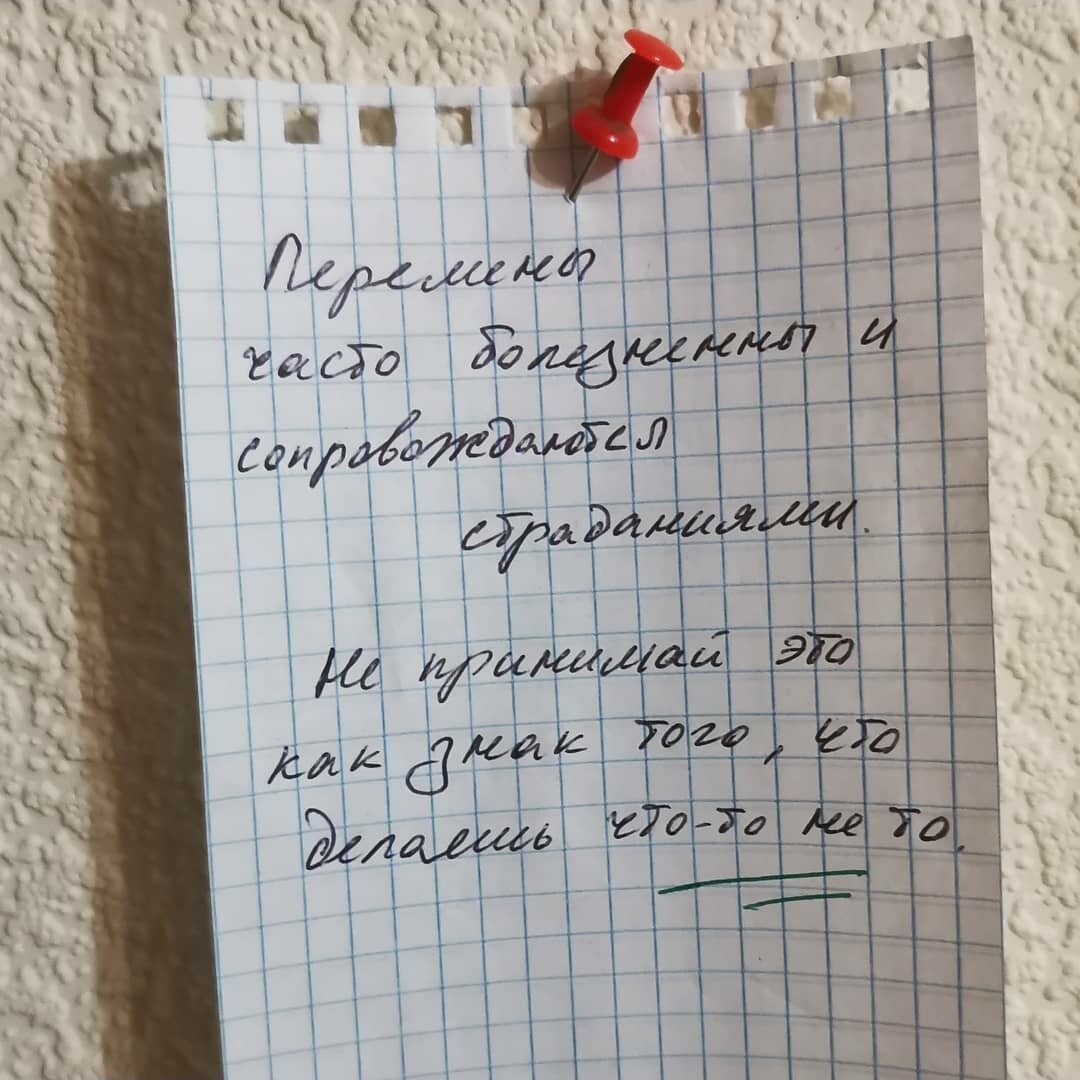 Перемены
часто болезненны и
сопровождаются
страданиями.
Не принимай это
как знак того, что
делаешь что-то не то.